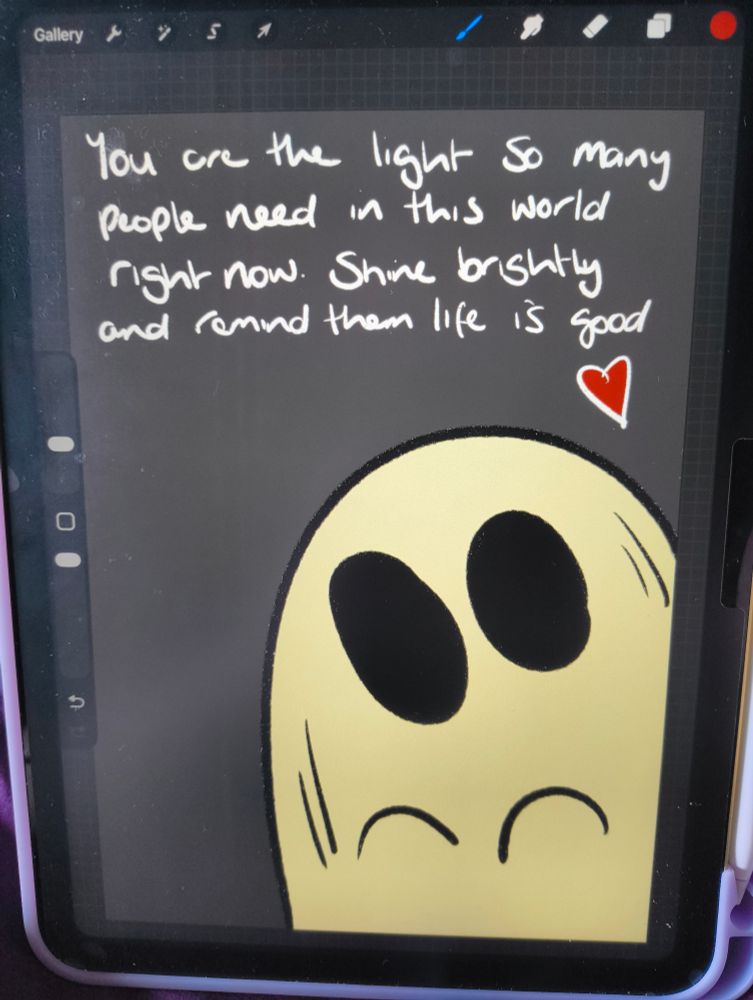 Gallery
You are the light so many
people need in this world
right now. Shine brightly
and remind them life is good